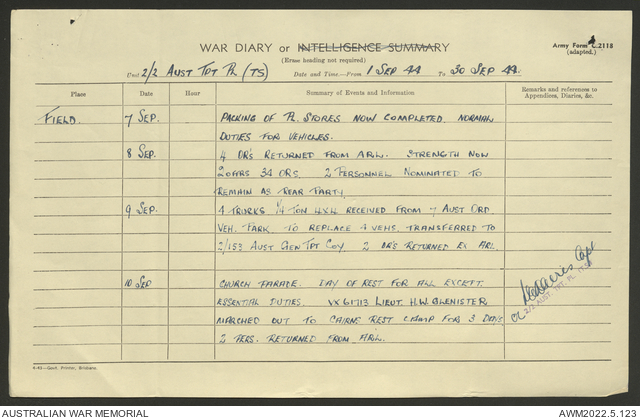 WAR DIARY or INTELLIGENCE SUMMARY
Army Form C.2118
(adapted.)
(Erase heading not required)
Unit 2/2 AUST TPT PL (TS) Date and Time—From 1 SEP 44 To 30 SEP 44.
Place Date Hour Summary of Events and Information Remarks and references to Appendices, Diaries, &c.
FIELD. 7 SEP. PACKING OF PL. STORES NOW COMPLETED. NORMAL
DUTIES FOR VEHICLES.
8 SEP. 4 OR'S RETURNED FROM ARL. STRENGTH NOW
2 OFFRS 34 ORS. 2 PERSONNEL NOMINATED TO
REMAIN AS REAR PARTY.
9 SEP. 4 TRUCKS 1/4 TON 4X4 RECEIVED FROM 7 AUST ORD
VEH. PARK. TO REPLACE 4 VEHS. TRANSFERRED TO
2/153 AUST GEN TPT COY. 2 OR'S RETURNED EX ARL.
10 SEP CHURCH PARADE. DAY OF REST FOR ALL EXCEPT
ESSENTIAL DUTIES. VX61713 LIEUT. H.W. GLENISTER
MARCHED OUT TO CAIRNS REST CAMP FOR 3 DAYS
2 PERS. RETURNED FROM ARL.
Capt
OC 2/2 AUST. TPT. PL. (TS)
4-43—Govt. Printer, Brisbane.
AUSTRALIAN WAR MEMORIAL
AWM2022.5.123